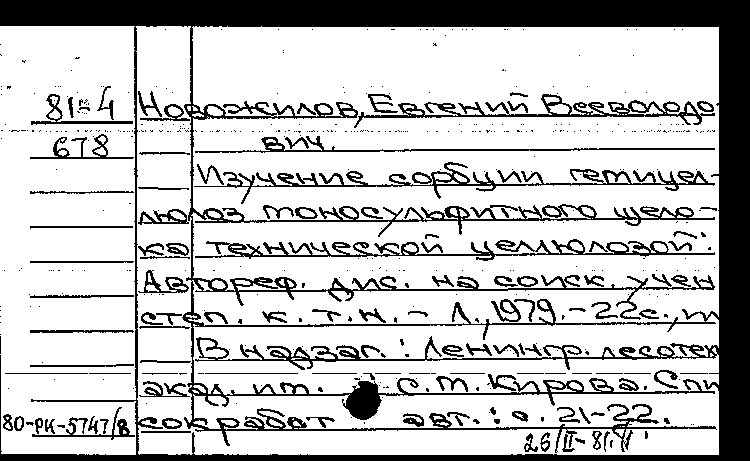 81-4 Новожилов, Евгений Всеволодо
678 вич.
Изучение сорбции гемицел-
люлоз моносульфитного щело-
ка технической целлюлозой:
Автореф. дис. на соиск. учен
степ. к.т.н. - Л., 1979. - 22с.,
В надзаг.: Ленингр. лесотех
акад. им. С.М. Кирова. Спи
80-РК-5747/8 сок работ авт.: с. 21-22.
26/II-81г.